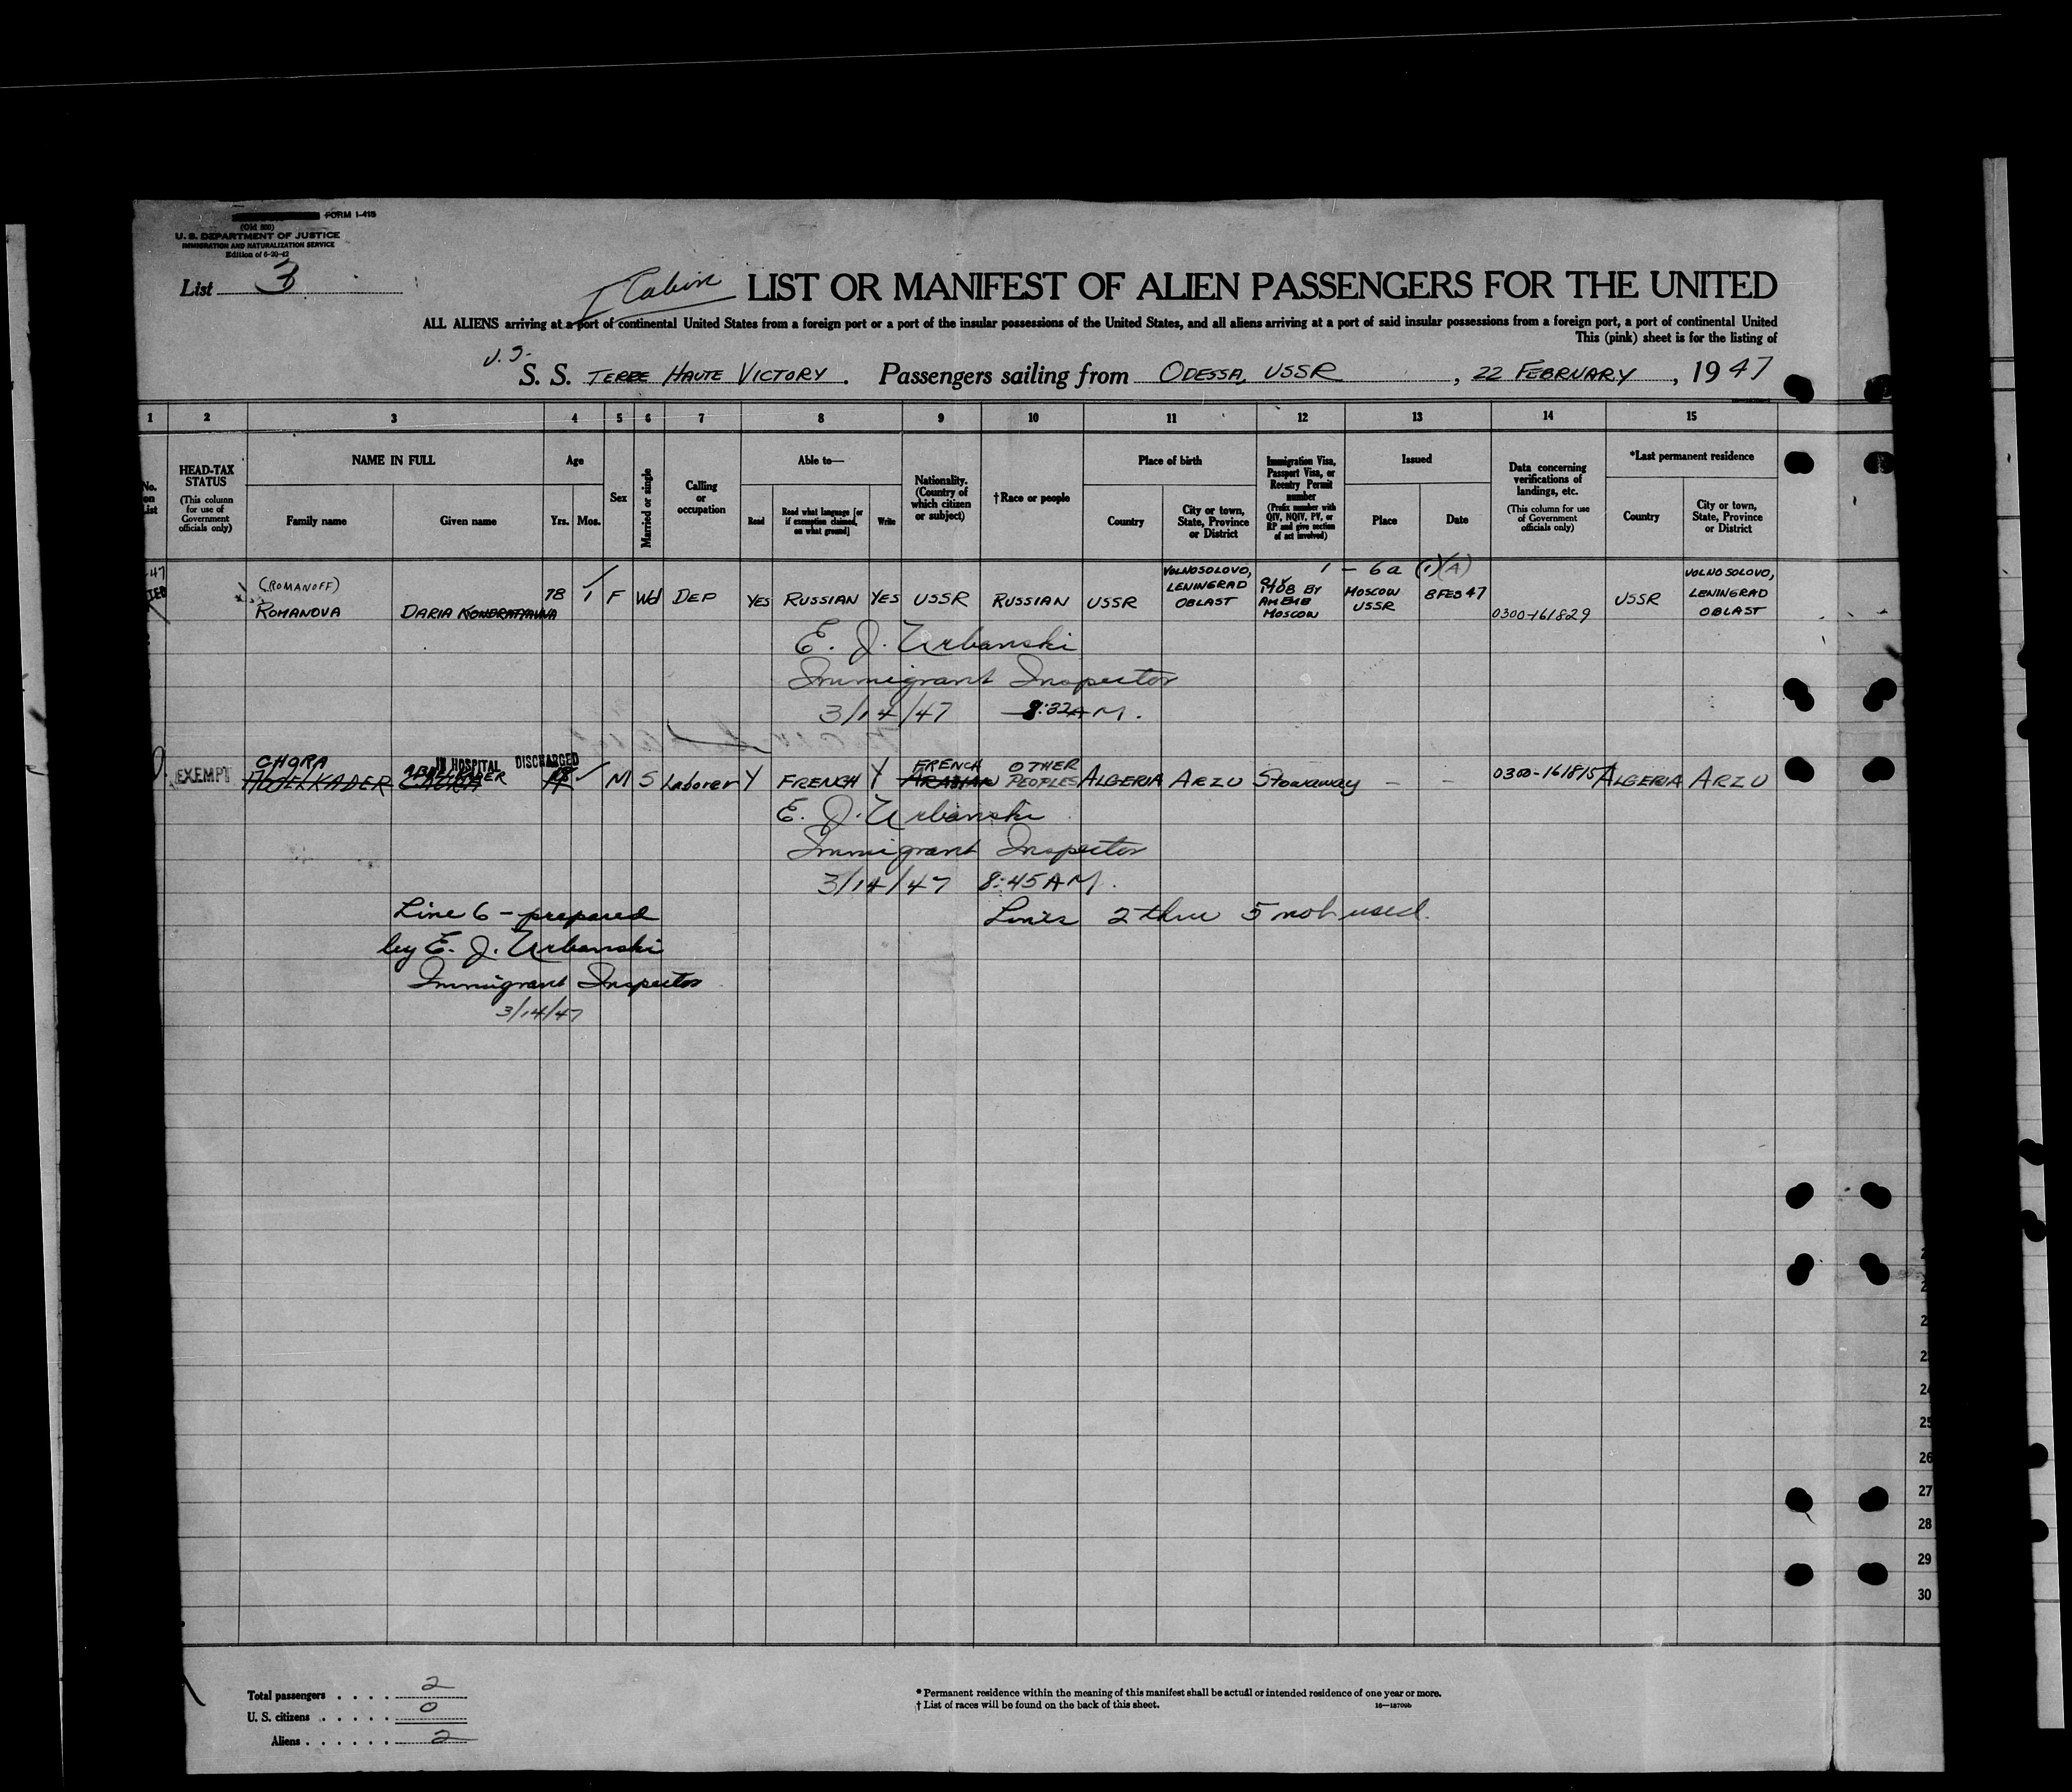 FORM I-415
(Old 500)
U. S. DEPARTMENT OF JUSTICE
IMMIGRATION AND NATURALIZATION SERVICE
Edition of 6-20-42
List 3
Cabin LIST OR MANIFEST OF ALIEN PASSENGERS FOR THE UNITED
ALL ALIENS arriving at a port of continental United States from a foreign port or a port of the insular possessions of the United States, and all aliens arriving at a port of said insular possessions from a foreign port, a port of continental United
This (pink) sheet is for the listing of
U. S.
S. S. TERRE HAUTE VICTORY. Passengers sailing from ODESSA, USSR, 22 FEBRUARY, 1947
1 2 3 4 5 6 7 8 9 10 11 12 13 14 15
No. on List
HEAD-TAX STATUS
(This column for use of Government officials only)
NAME IN FULL
Family name Given name
Age
Yrs. Mos.
Sex
Married or single
Calling or occupation
Able to—
Read
Read what language [or if exemption claimed, on what ground]
Write
Nationality. (Country of which citizen or subject)
†Race or people
Place of birth
Country
City or town, State, Province or District
Immigration Visa, Passport Visa, or Reentry Permit number
(Prefix number with QIV, NQIV, PV, or RP and give section of act involved)
Issued
Place Date
Data concerning verifications of landings, etc.
(This column for use of Government officials only)
*Last permanent residence
Country
City or town, State, Province or District
1 - 6a (1)(A)
(ROMANOFF)
ROMANOVA DARIA KONDRATAVNA 78 1 F Wd DEP YES RUSSIAN YES USSR RUSSIAN USSR
VOLNOSOLOVO,
LENINGRAD
OBLAST
1408 BY
AMEMB
MOSCOW
MOSCOW
USSR
8 FEB 47
0300-161829
USSR
VOLNOSOLOVO,
LENINGRAD
OBLAST
E. J. Urbanski
Immigrant Inspector
3/14/47 8:32 AM.
IN HOSPITAL DISCHARGED
CHORA
EXEMPT ABDELKADER M S Laborer Y FRENCH Y
FRENCH
ARABIAN
OTHER
PEOPLES
ALGERIA ARZU Stowaway - - 0300-161815 ALGERIA ARZU
E. J. Urbanski
Immigrant Inspector
3/14/47 8:45 AM.
Line 6 - prepared
by E. J. Urbanski
Immigrant Inspector
3/14/47
Lines 2 thru 5 not used.
24
25
26
27
28
29
30
Total passengers . . . . 2
U. S. citizens . . . . . 0
Aliens . . . . . . 2
* Permanent residence within the meaning of this manifest shall be actual or intended residence of one year or more.
† List of races will be found on the back of this sheet.